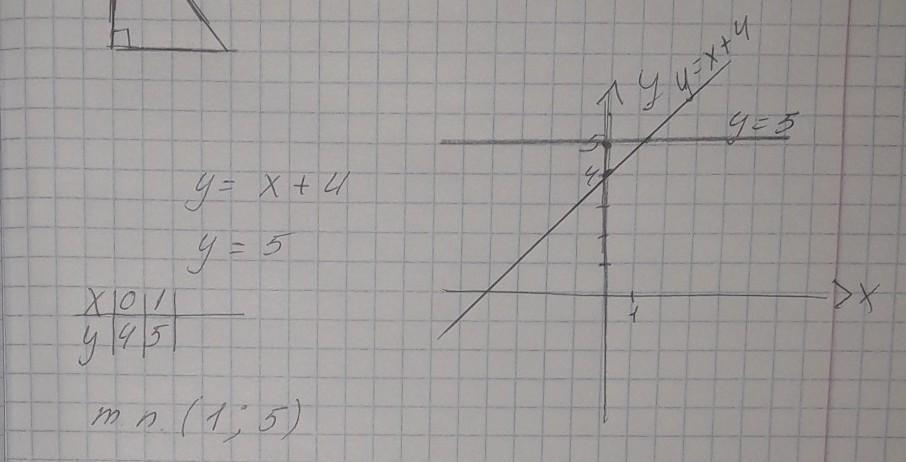 y = x + 4
y = 5
x 0 1
y 4 5
т п. (1; 5)
y
y=x+4
y = 5
5
4
1
x